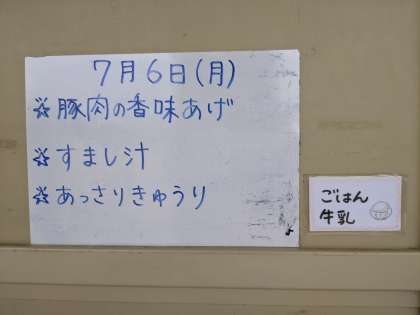 7月6日(月)
☆豚肉の香味あげ
☆すまし汁
☆あっさりきゅうり
ごはん
牛乳